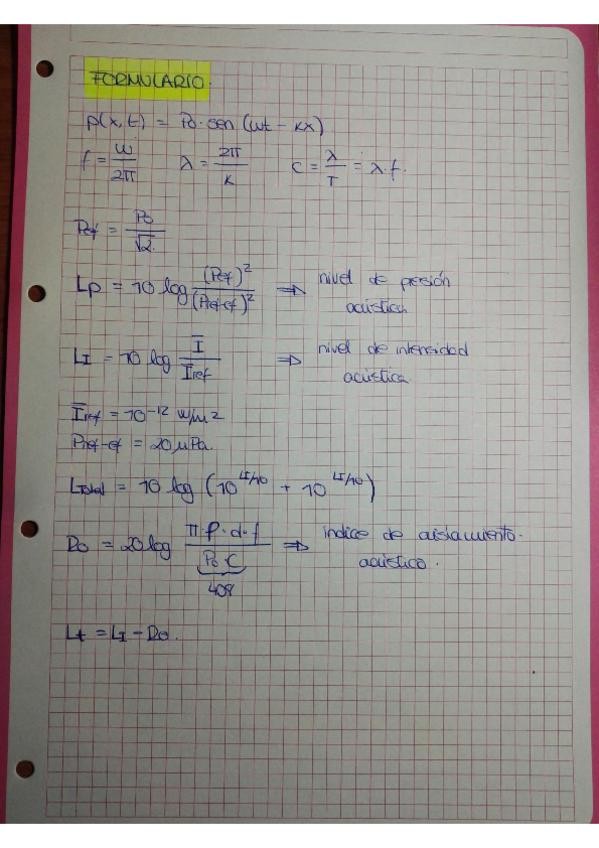 FORMULARIO.
p(x,t) = Po · sen (wt - kx)
f = w/2π    λ = 2π/K    c = λ/T = λ·f.
Pef = Po/√2
Lp = 10 log (Pef)²/(Pref-ef)² ⇒ nivel de presión acústica
LI = 10 log I/Iref ⇒ nivel de intensidad acústica
Iref = 10⁻¹² w/m²
Pref-ef = 20 μPa.
Ltotal = 10 log (10^(LI/10) + 10^(LI/10))
Do = 20 log π ρ·d·f / Po C ⇒ indice de aislamiento acústico.
408
Lt = LI - Do.